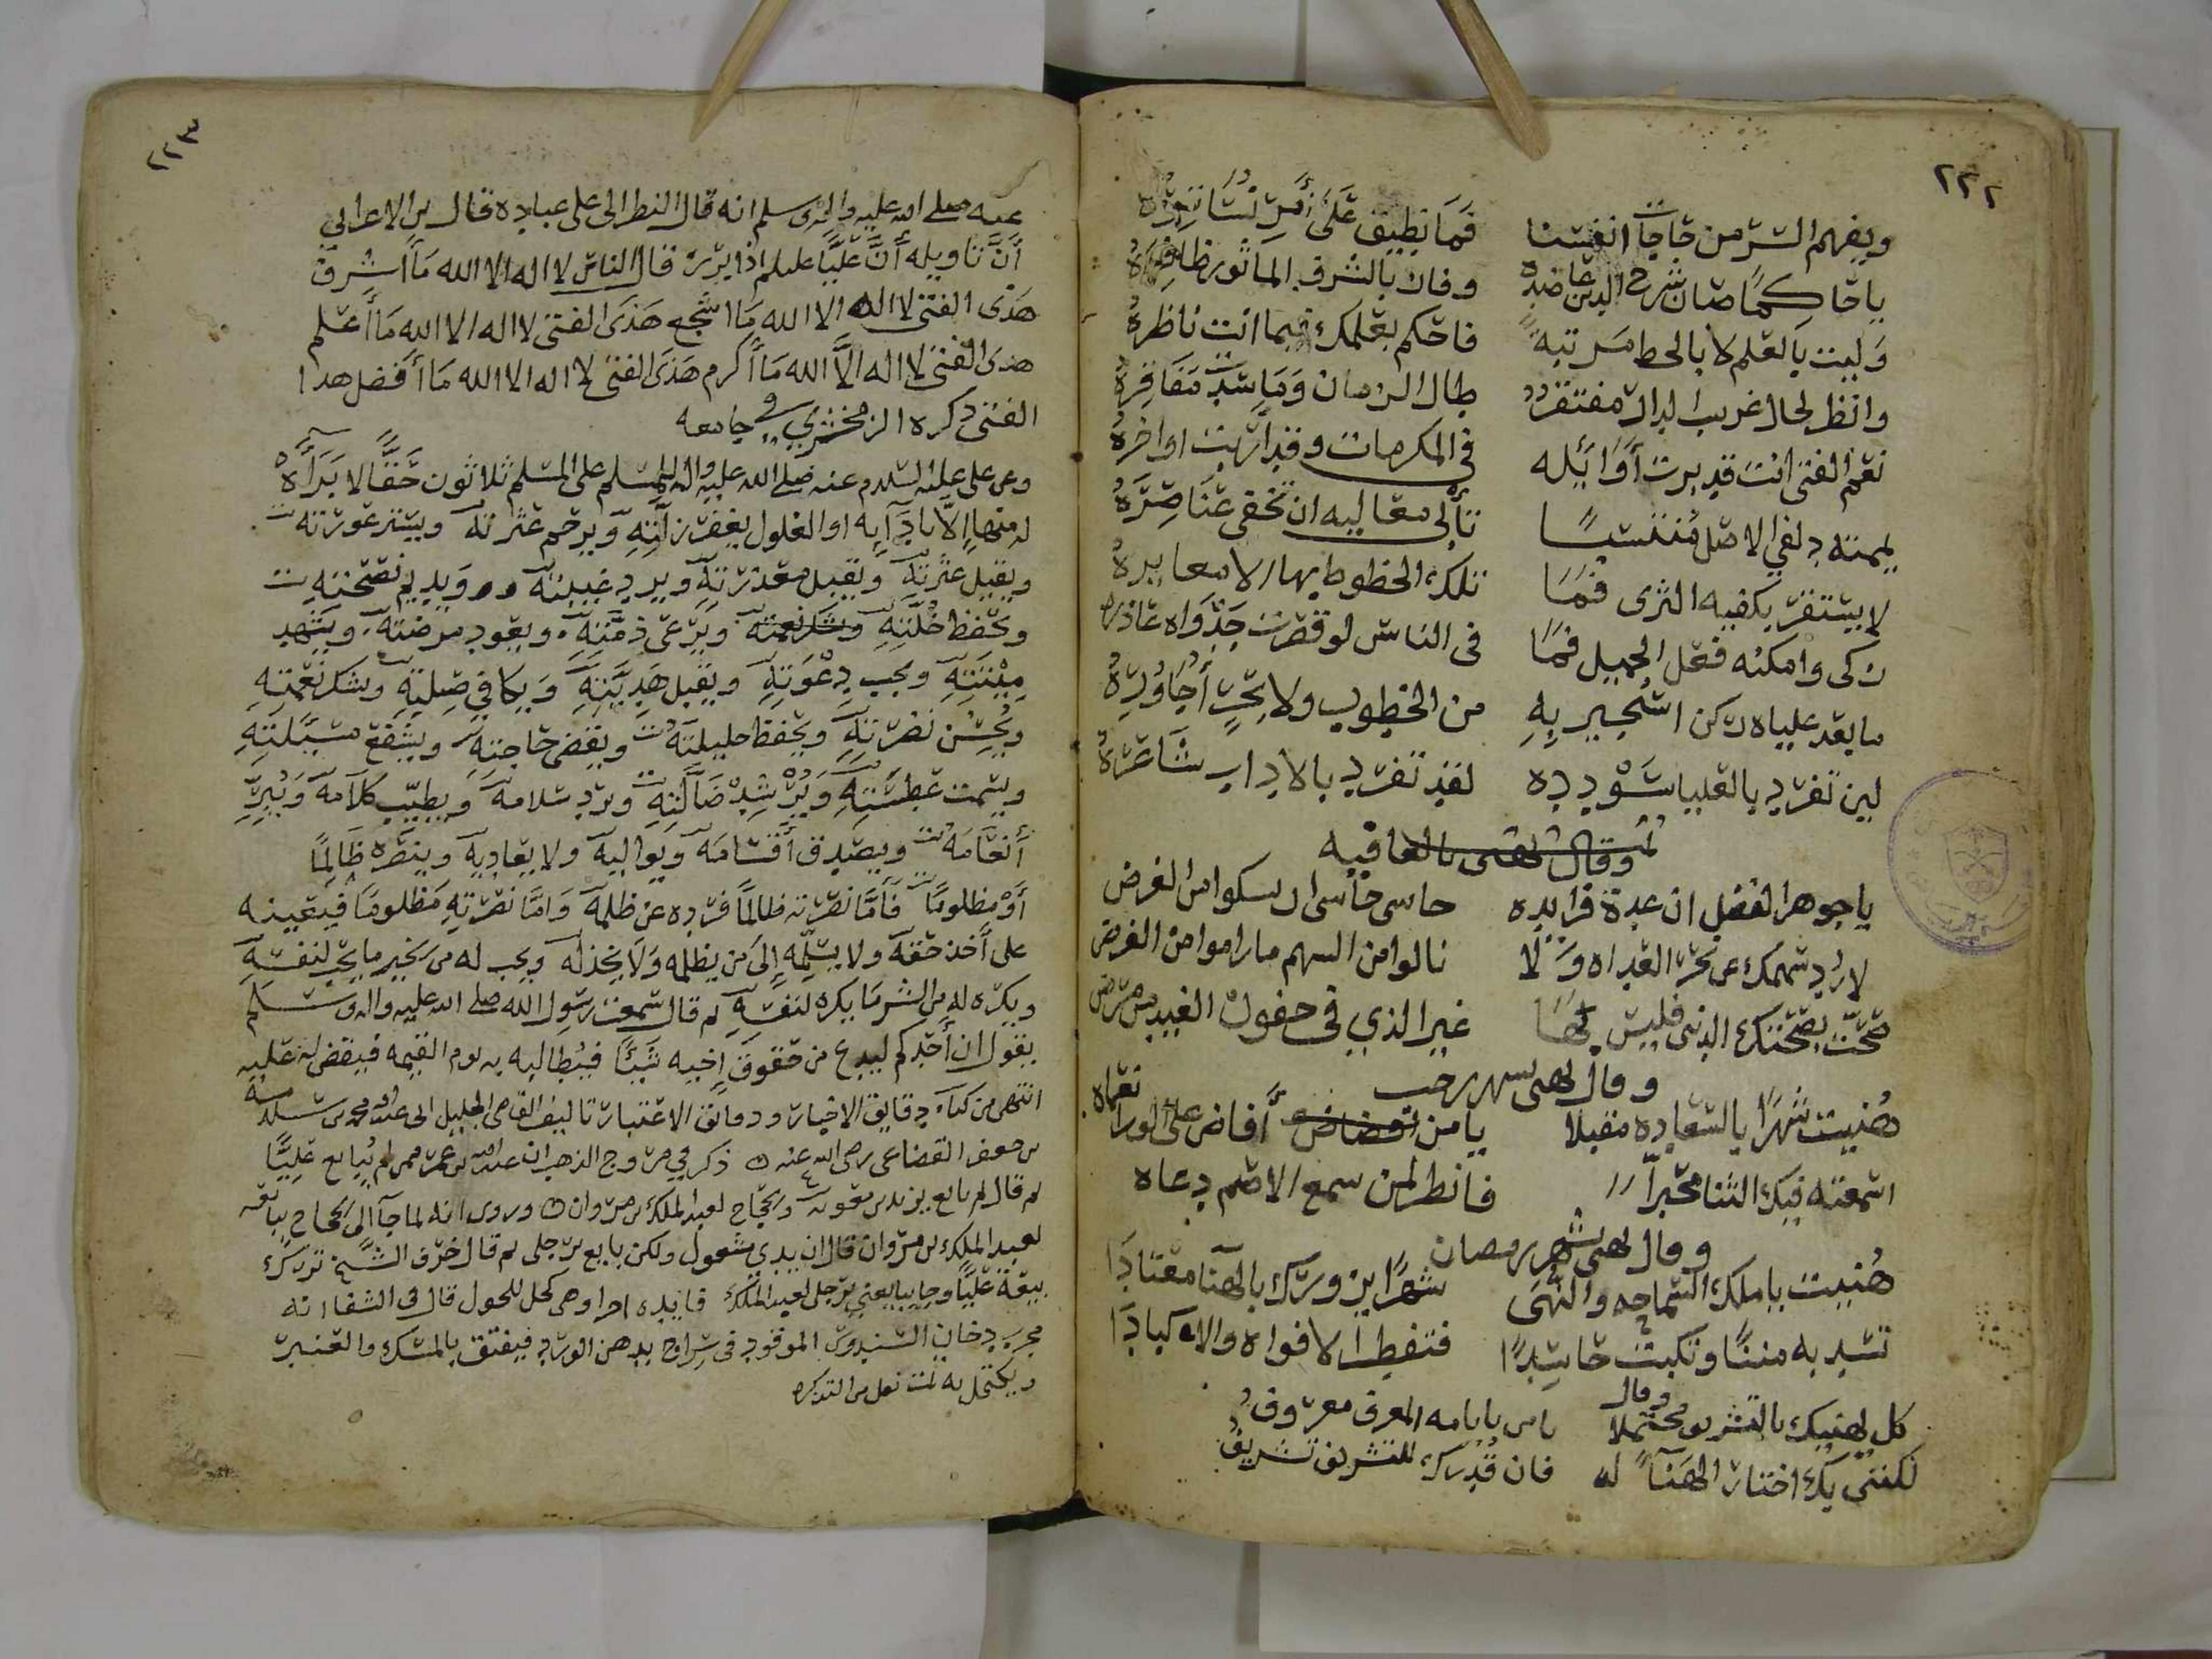 ٢٢٢
ويفهم السر من حاجات انفسنا فما نطيق على أمر نساتره
يا حاكما صان شرح الدين عاضده وفاز بالشرف المأثور ظاهره
وليت بالعلم لا بالحظ مرتبة فاحكم بعلمك فيما انت ناظره
وانظر لحال غريب الدار مفتقر طال الزمان وما سدت مفاقره
نعم الفتى انت قد برت أوائله في المكرمات وقد أربت اواخره
الاصل منتسبا تأبى معاليه ان تخفى عناصره
لا يستقر بكفيه الثرى فما تلك الحظوظ بها
زكى وامكنه فعل الجميل فما في الناس لو قصرت جدواه عاذره
ما بعد علياه ركن استجير به من الخطوب ولا بحر أجاوره
لين تفرد بالعليا سودده لقد تفرد بالاداب شاعره
وقال يهنى بالعافيه
يا جوهر الفضل ان عدة فرايده حاسى حاسى ان يسكوا من العرض
لا رد سهمك عن نحر العداه ولا نالوا من السهم ما راموا من الغرض
صحت بصحتك الدنى فليس بها غير الذي في جفون الغيد من مرض
وقال يهنى بشهر رجب
هنيت شهرا بالسعاده مقبلا يا من أفاض على الورا نعماه
اسمعته فيك الثنا مخبرا فانظر لمن سمع الاصم دعاه
وقال يهنى بشهر رمضان
هنيت يا ملك السماحه والنهى شهرا يزورك بالهنا معتادا
تسد به مننا وتكبت حاسدا فتفطر الافواه والاكبادا
وقال
كل يهنيك بالتشريف محتملا يا من بايامه المعرف معروف
لكنني بك اختار الهناء له فان قدرك للتشريف تشريف
٢٢٣
عنه صلى الله عليه واله وسلم انه قال النظر الى على عباده قال بن الاعرابي
أن تاويله أن عليا عليلم اذا برز قال الناس لا اله الا الله ما أشرف
هذى الفتى لا اله الا الله ما اشجع هذى الفتى لا اله الا الله ما أعلم
هذى الفتى لا اله الا الله ما أكرم هذى الفتى لا اله الا الله ما أفضل هذا
الفتى ذكره الزمخشري في جامعه
وعن على عليه السلام عنه صلى الله عليه واله للمسلم على المسلم ثلاثون حقا لا براة
له منها الا بادآيه او العفو يغفر زلته ويرحم عثرته ويستر عورته
ويقيل عثرته ويقبل معذرته ويرد غيبته ويديم نصحته
ويحفظ خلته وشكر نعمته ويرعى ذمته ويعود مرضته ويشهد
ميتته ويجيب دعوته ويقبل هديته ويكافي صلته وشكر نعمته
ويحسن نصرته ويحفظ حليلته ويقضى حاجته ويشفع مسئلته
ويسمت عطسته ويرشد ضالته ويرد سلامه ويطيب كلامه ويبر
أنعامه ويصدق أقسامه ويواليه ولا يعاديه وينصره ظالما
أو مظلوما فأما نصرته ظالما فرده عن ظلمه واما نصرته مظلوما فيعينه
على أخذ حقه ولا يسلمه إلى من يظلمه ولا يخذله ويحب له من الخير ما يحب لنفسه
ويكره له من الشر ما يكره لنفسه ثم قال سمعت رسول الله صلى الله عليه واله وسلم
يقول ان أحدكم ليدع من حقوق اخيه شيئا فيطالبه به يوم القيمه فيقضى له عليه
انتهى من كتاب دقايق الاخبار وحدائق الاعتبار تاليف القاضى الجليل ابى عبدالله محمد بن سلامة
بن جعفر القضاعى رضى الله عنه ذكر في مروج الذهب ان عبدالله بن عمر ممن لم يبايع عليا
ثم قال ثم بايع يزيد بن معويه والحجاج لعبد الملك بن مروان وروى انه لما جآ الى الحجاج يبايعه
لعبد الملك بن مروان قال ان يدي مشغول ولكن بايع برجلى ثم قال خرف الشيخ ترك
بيعة عليا وجا يبايعني برجلى لعبد الملك فايده اخرا وهي كحل للحول قال في الشفا انه
مجرب دخان السندروس الموقود في سراج بدهن الورد فيفتق بالمسك والعنبر
ويكتحل به تمت نقل من التذكره